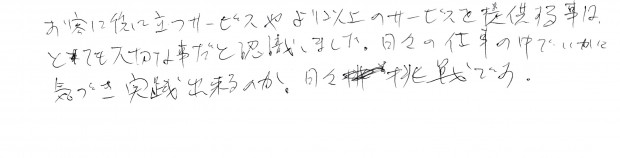 お客に役に立つサービスやより以上のサービスを提供する事は、
とても大切な事だと認識しました。日々の仕事の中でいかに
気づき実践出来るのか。日々挑戦です。